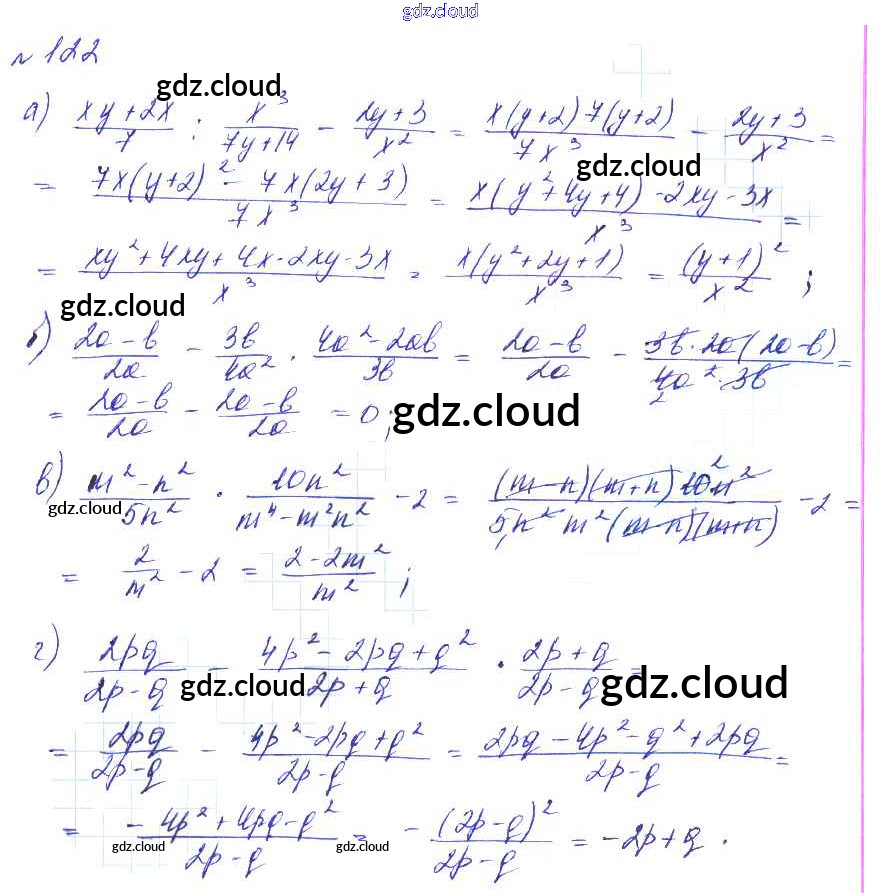 gdz.cloud
№ 122
gdz.cloud
а) (xy+2x)/7 : x³/(7y+14) - (2y+3)/x² = (x(y+2)7(y+2))/(7x³) - (2y+3)/x² =
gdz.cloud
= (7x(y+2)² - 7x(2y+3))/(7x³) = (x(y²+4y+4)-2xy-3x)/x³ =
= (xy²+4xy+4x-2xy-3x)/x³ = (x(y²+2y+1))/x³ = (y+1)²/x² ;
gdz.cloud
б) (2a-b)/(2a) - 3b/(4a²) · (4a²-2ab)/(3b) = (2a-b)/(2a) - (3b·2a(2a-b))/(4a²·3b) =
= (2a-b)/(2a) - (2a-b)/(2a) = 0;
gdz.cloud
в) (m²-n²)/(5n²) · 10n²/(m⁴-m²n²) - 2 = ((m-n)(m+n)10n²)/(5n²m²(m-n)(m+n)) - 2 =
gdz.cloud
= 2/m² - 2 = (2-2m²)/m² ;
г) 2pq/(2p-q) - (4p²-2pq+q²)/(2p+q) · (2p+q)/(2p-q) =
gdz.cloud
gdz.cloud
= 2pq/(2p-q) - (4p²-2pq+q²)/(2p-q) = (2pq-4p²-q²+2pq)/(2p-q) =
= (-4p²+4pq-q²)/(2p-q) = - (2p-q)²/(2p-q) = -2p+q .
gdz.cloud
gdz.cloud